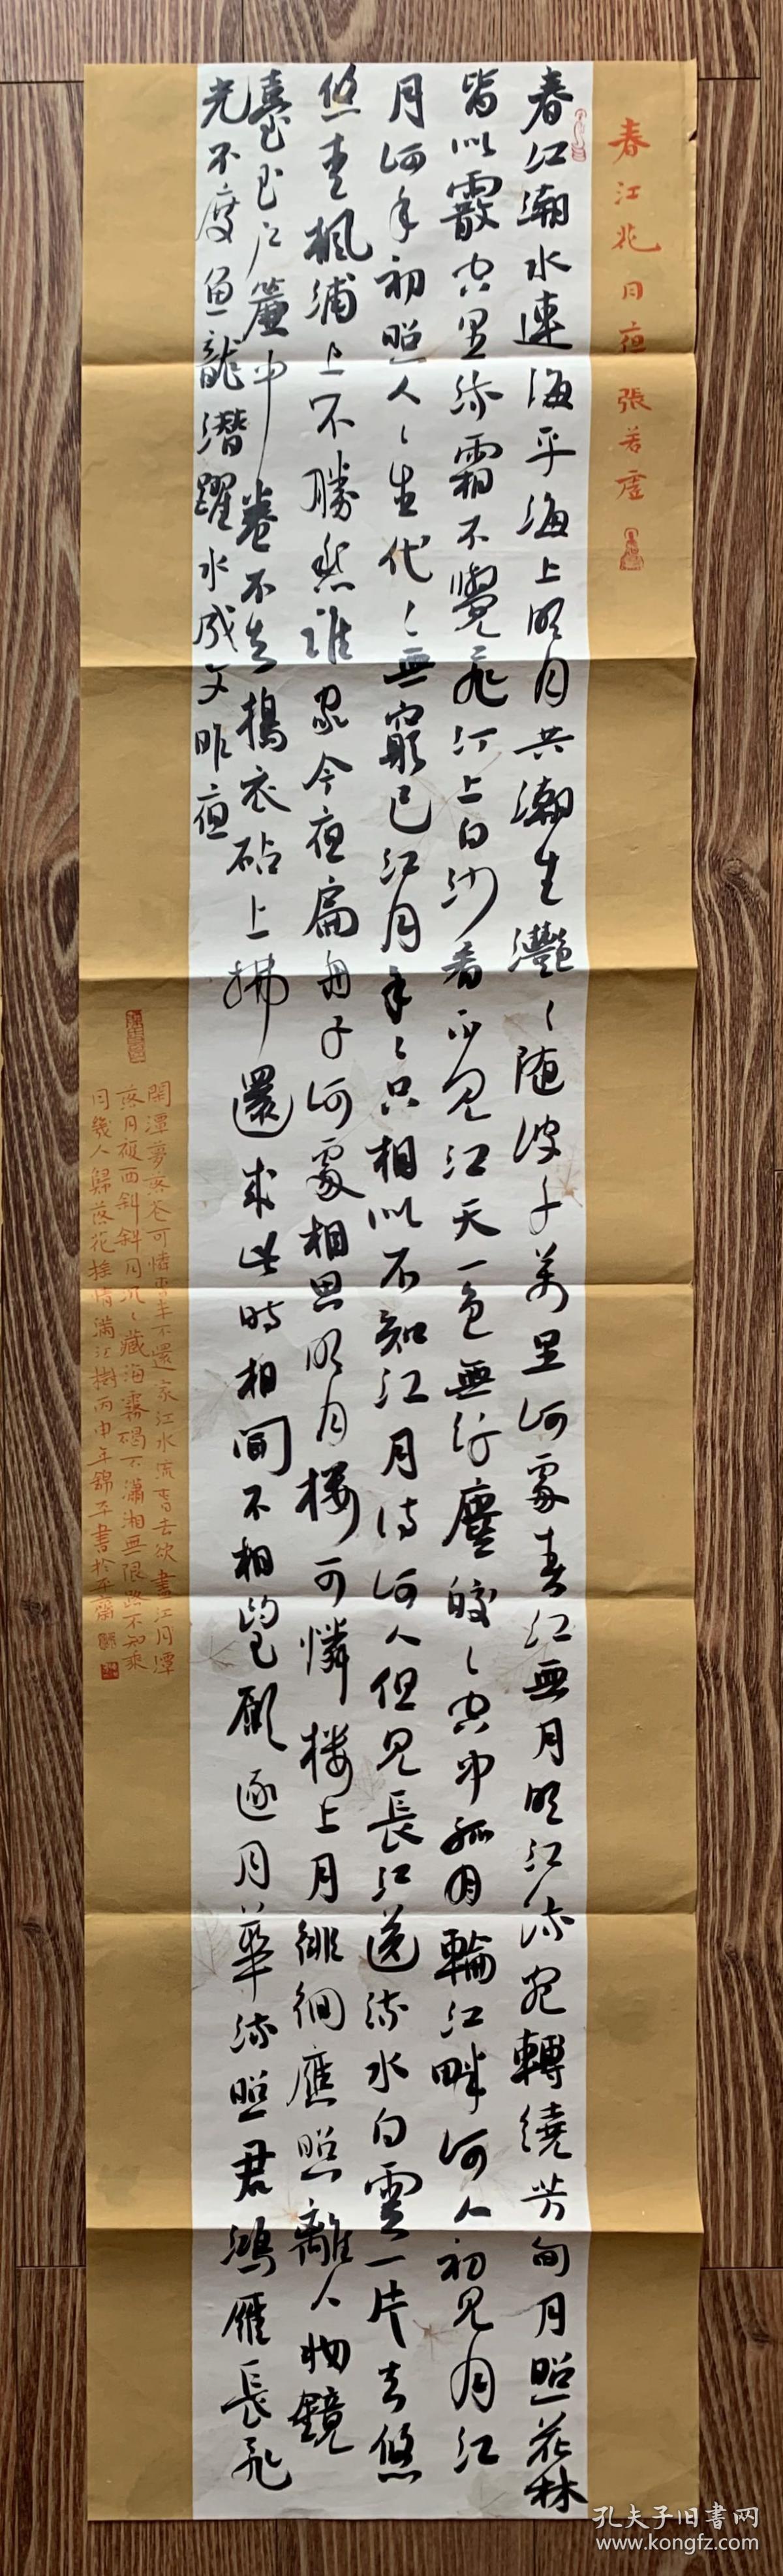 春江花月夜張若虛
春江潮水連海平海上明月共潮生灩〻隨波千萬里何處春江無月明江流宛轉繞芳甸月照花林
皆似霰空里流霜不覺飛汀上白沙看不見江天一色無纖塵皎〻空中孤月輪江畔何人初見月江
月何年初照人〻生代〻無窮已江月年〻只相似不知江月待何人但見長江送流水白雲一片去悠
悠青楓浦上不勝愁誰家今夜扁舟子何處相思明月楼可憐楼上月徘徊應照離人妝鏡
臺玉戶簾中卷不去搗衣砧上拂還來此時相聞不相望願逐月華流照君鴻雁長飛
光不度魚龍潛躍水成文昨夜
閑潭夢落花可憐春半不還家江水流春去欲盡江月潭
落月複西斜斜月沉〻藏海霧碣石瀟湘無限路不知乘
月幾人歸落花搖情滿江樹丙申年錦平書於平齋
孔夫子旧书网
www.kongfz.com